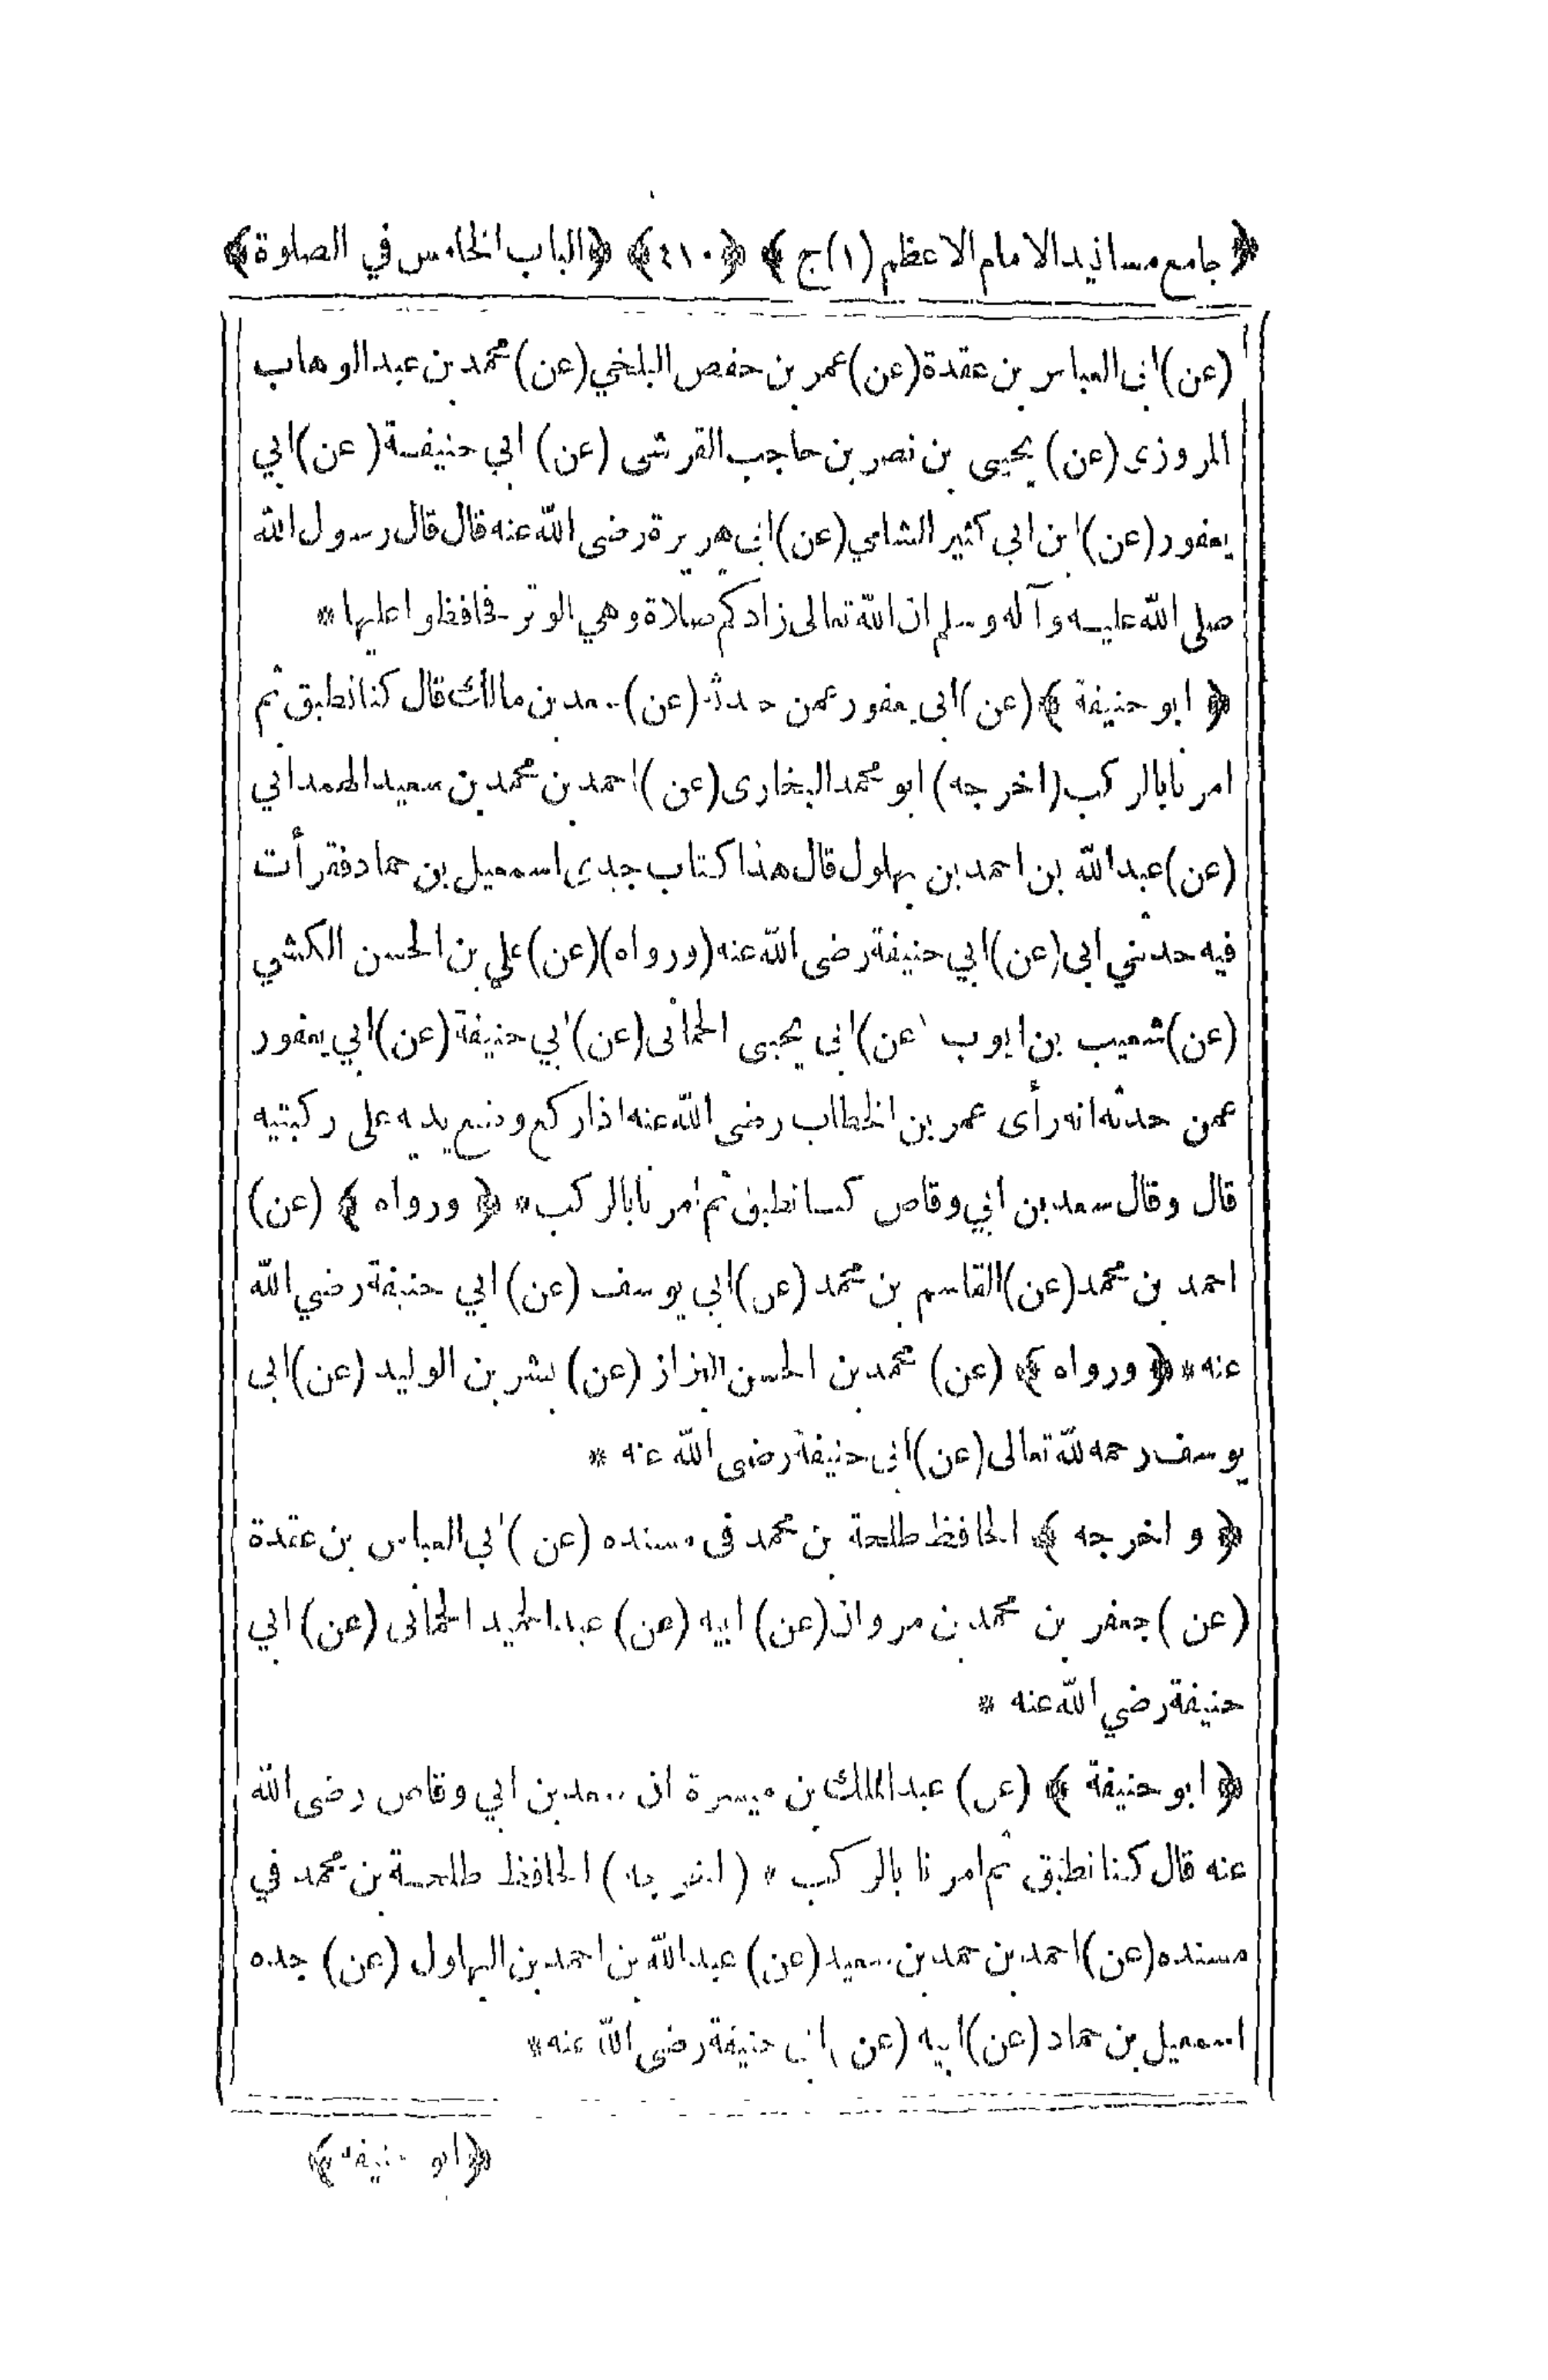 ﴿ جامع مسانيد الامام الاعظم (١) ج ﴾ ﴿٤١٠﴾ ﴿الباب الخامس في الصلوة﴾
(عن) ابى العباس بن عقدة (عن) عمر بن حفص البلخي (عن) محمد بن عبد الوهاب
المروزى (عن) يحيى بن نصر بن حاجب القرشى (عن) ابي حنيفة (عن) ابي
يعفور (عن) ابن ابى كثير الشامي (عن) ابى هريرة رضى الله عنه قال قال رسول الله
صلى الله عليه وآله وسلم ان الله تعالى زادكم صلاة وهي الوتر فحافظوا عليها *
﴿ ابو حنيفة ﴾ (عن) ابى يعفور عمن حدثه (عن) سعد بن مالك قال كنا نطبق ثم
امرنا بالركب (اخرجه) ابو محمد البخارى (عن) احمد بن محمد بن سعيد الهمداني
(عن) عبد الله بن احمد بن بهلول قال هذا كتاب جدى اسمعيل بن حماد فقرأت
فيه حدثني ابى (عن) ابي حنيفة رضى الله عنه (ورواه) (عن) علي بن الحسن الكشي
(عن) شعيب بن ايوب (عن) ابى يحيى الحمانى (عن) ابي حنيفة (عن) ابي يعفور
عمن حدثه انه رأى عمر بن الخطاب رضى الله عنه اذا ركع وضع يديه على ركبتيه
قال وقال سعد بن ابي وقاص كنا نطبق ثم امرنا بالركب * ﴿ ورواه ﴾ (عن)
احمد بن محمد (عن) القاسم بن محمد (عن) ابى يوسف (عن) ابي حنيفة رضي الله
عنه * ﴿ ورواه ﴾ (عن) محمد بن الحسن البزاز (عن) بشر بن الوليد (عن) ابى
يوسف رحمه الله تعالى (عن) ابى حنيفة رضى الله عنه *
﴿ و اخرجه ﴾ الحافظ طلحة بن محمد فى مسنده (عن) ابي العباس بن عقدة
(عن) جعفر بن محمد بن مروان (عن) ابيه (عن) عبد الحميد الحمانى (عن) ابي
حنيفة رضي الله عنه *
﴿ ابو حنيفة ﴾ (عن) عبد الملك بن ميسرة ان سعد بن ابي وقاص رضى الله
عنه قال كنا نطبق ثم امرنا بالركب * (اخرجه) الحافظ طلحة بن محمد في
مسنده (عن) احمد بن حمد بن سعيد (عن) عبد الله بن احمد بن البهلول (عن) جده
اسمعيل بن حماد (عن) ابيه (عن) ابى حنيفة رضى الله عنه *
﴿ابو حنيفة﴾